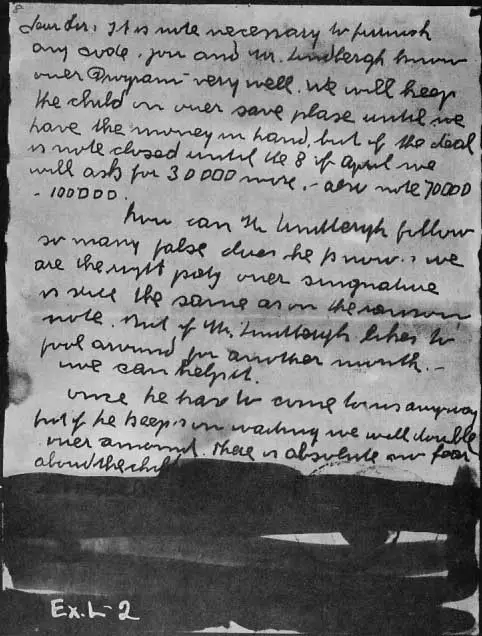 Dear Sir: It is note necessary to furnish
any code. you and Mr. Lindbergh know
ouer Program very well. We will keep
the child in ouer save plase until we
have the money in hand, but if the deal
is note closed until the 8 of April we
will ask for 30000 more. - also note 70000
- 100000.
how can Mr Lindbergh follow
so many false clues he know's we
are the right party ouer singnature
is still the same as on the ransom
note. But if Mr. Lindbergh likes to
fool around for another month. -
we can help it.
once he hase to come to us anyway
but if he keep's on waiting we will double
ouer amount. there is absolute no fear
aboud the child
Ex. L-2